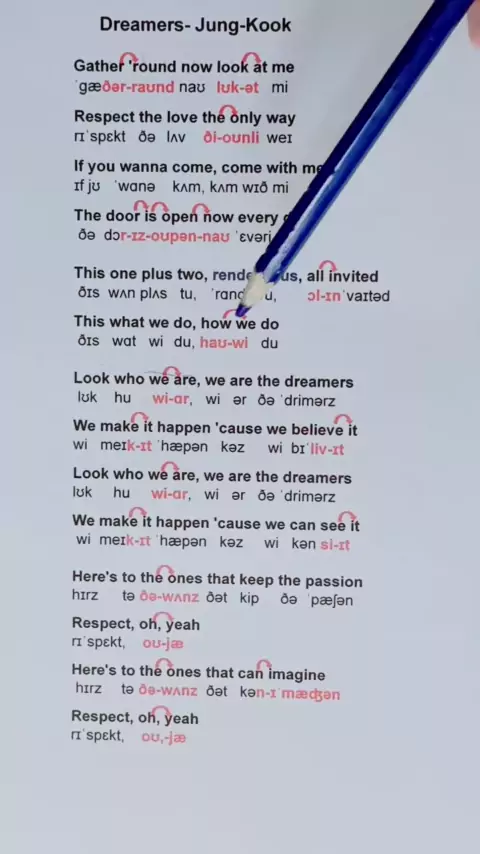 Dreamers- Jung-Kook
Gather 'round now look at me
ˈgæðər-raʊnd naʊ lʊk-ət mi
Respect the love the only way
rɪˈspɛkt ðə lʌv ði-oʊnli weɪ
If you wanna come, come with me
ɪf jʊ ˈwɑnə kʌm, kʌm wɪð mi
The door is open now every
ðə dɔr-ɪz-oʊpən-naʊ ˈɛvəri
This one plus two, all invited
ðɪs wʌn plʌs tu, ɔl-ɪnˈvaɪtəd
This what we do, how we do
ðɪs wɑt wi du, haʊ-wi du
Look who we are, we are the dreamers
lʊk hu wi-ɑr, wi ər ðə ˈdrimərz
We make it happen 'cause we believe it
wi meɪk-ɪt ˈhæpən kəz wi bɪˈliv-ɪt
Look who we are, we are the dreamers
lʊk hu wi-ɑr, wi ər ðə ˈdrimərz
We make it happen 'cause we can see it
wi meɪk-ɪt ˈhæpən kəz wi kən si-ɪt
Here's to the ones that keep the passion
hɪrz tə ðə-wʌnz ðət kip ðə ˈpæʃən
Respect, oh, yeah
rɪˈspɛkt, oʊ-jæ
Here's to the ones that can imagine
hɪrz tə ðə-wʌnz ðət kən-ɪˈmæʤən
Respect, oh, yeah
rɪˈspɛkt, oʊ,-jæ